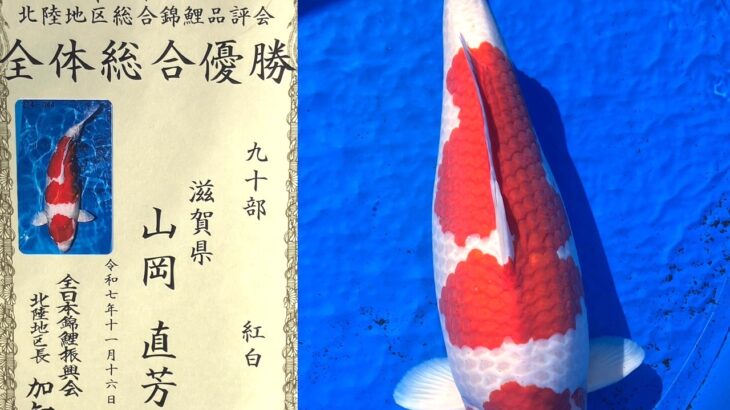 北陸地区総合錦鯉品評会
全体総合優勝
九十部 紅白
滋賀県
山岡 直芳
令和七年十一月十六日
全日本錦鯉振興会
北陸地区長